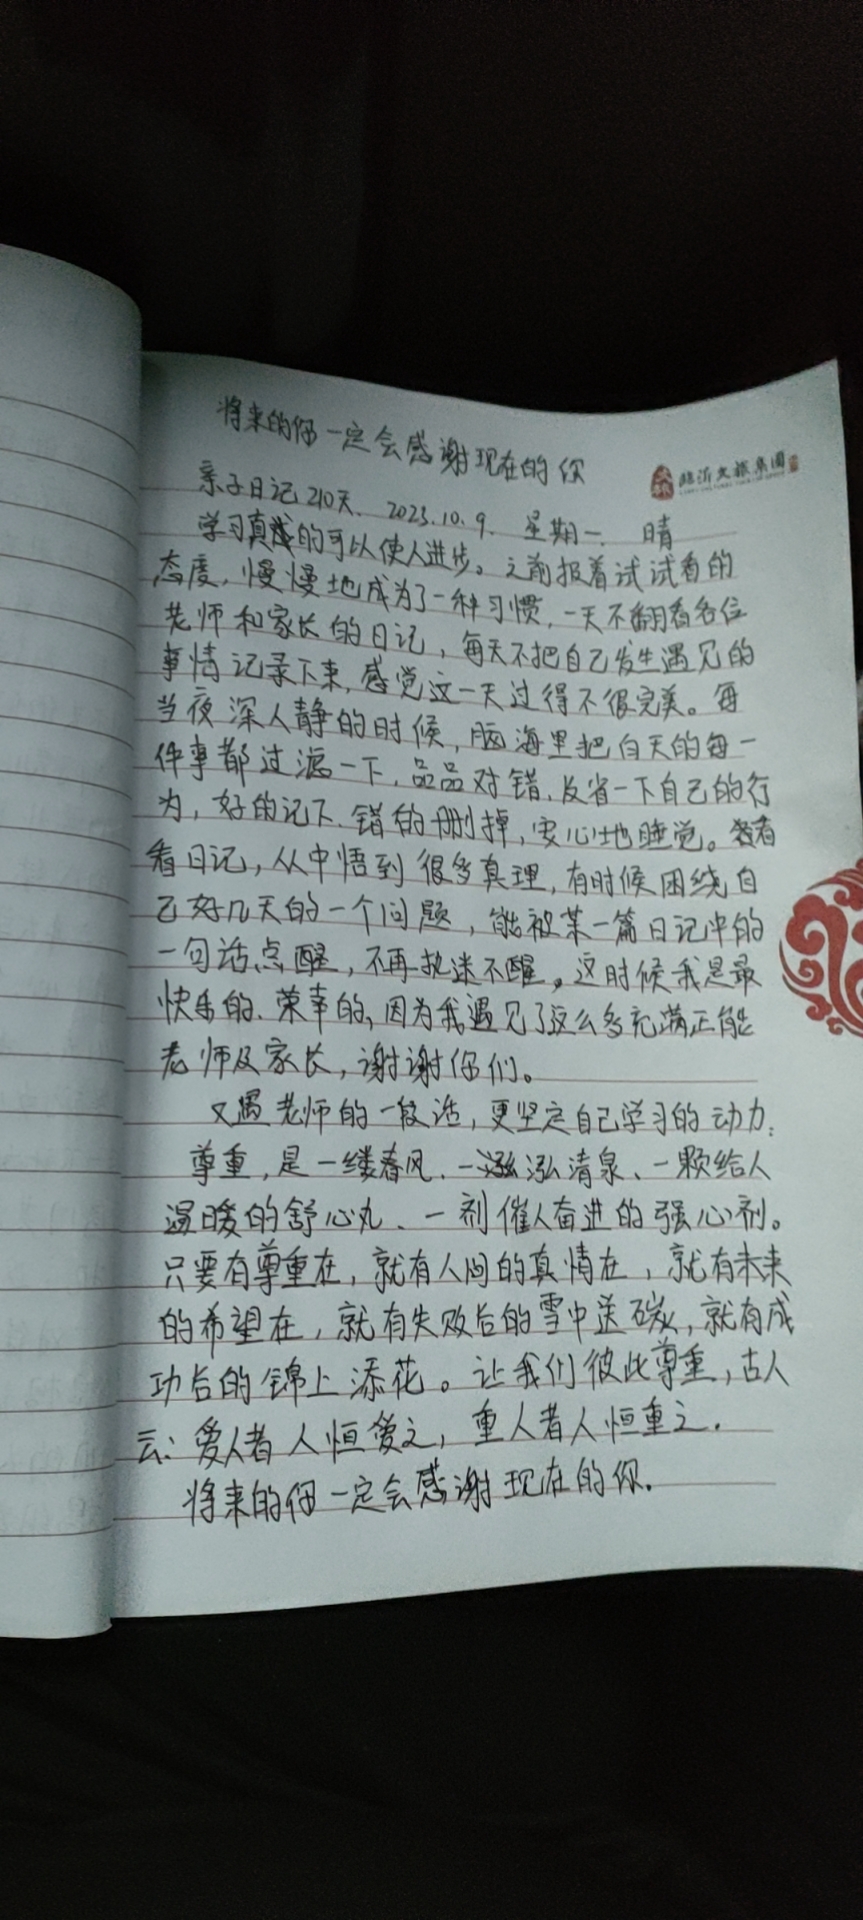 将来的你一定会感谢现在的你
临沂文旅集团
亲子日记210天. 2023.10.9. 星期一. 晴
学习真的可以使人进步。之前报着试试看的
态度,慢慢地成为了一种习惯,一天不翻看各位
老师和家长的日记,每天不把自己发生遇见的
事情记录下来,感觉这一天过得不很完美。每
当夜深人静的时候,脑海里把白天的每一
件事都过滤一下,品品对错,反省一下自己的行
为,好的记下、错的删掉,安心地睡觉。看
看日记,从中悟到很多真理,有时候困绕自
己好几天的一个问题,能被某一篇日记中的
一句话点醒,不再执迷不醒。这时候我是最
快乐的、荣幸的,因为我遇见了这么多充满正能
老师及家长,谢谢你们。
又遇老师的一段话,更坚定自己学习的动力:
尊重,是一缕春风、一泓清泉、一颗给人
温暖的舒心丸、一剂催人奋进的强心剂。
只要有尊重在,就有人间的真情在,就有未来
的希望在,就有失败后的雪中送碳,就有成
功后的锦上添花。让我们彼此尊重,古人
云:爱人者人恒爱之,重人者人恒重之.
将来的你一定会感谢现在的你.